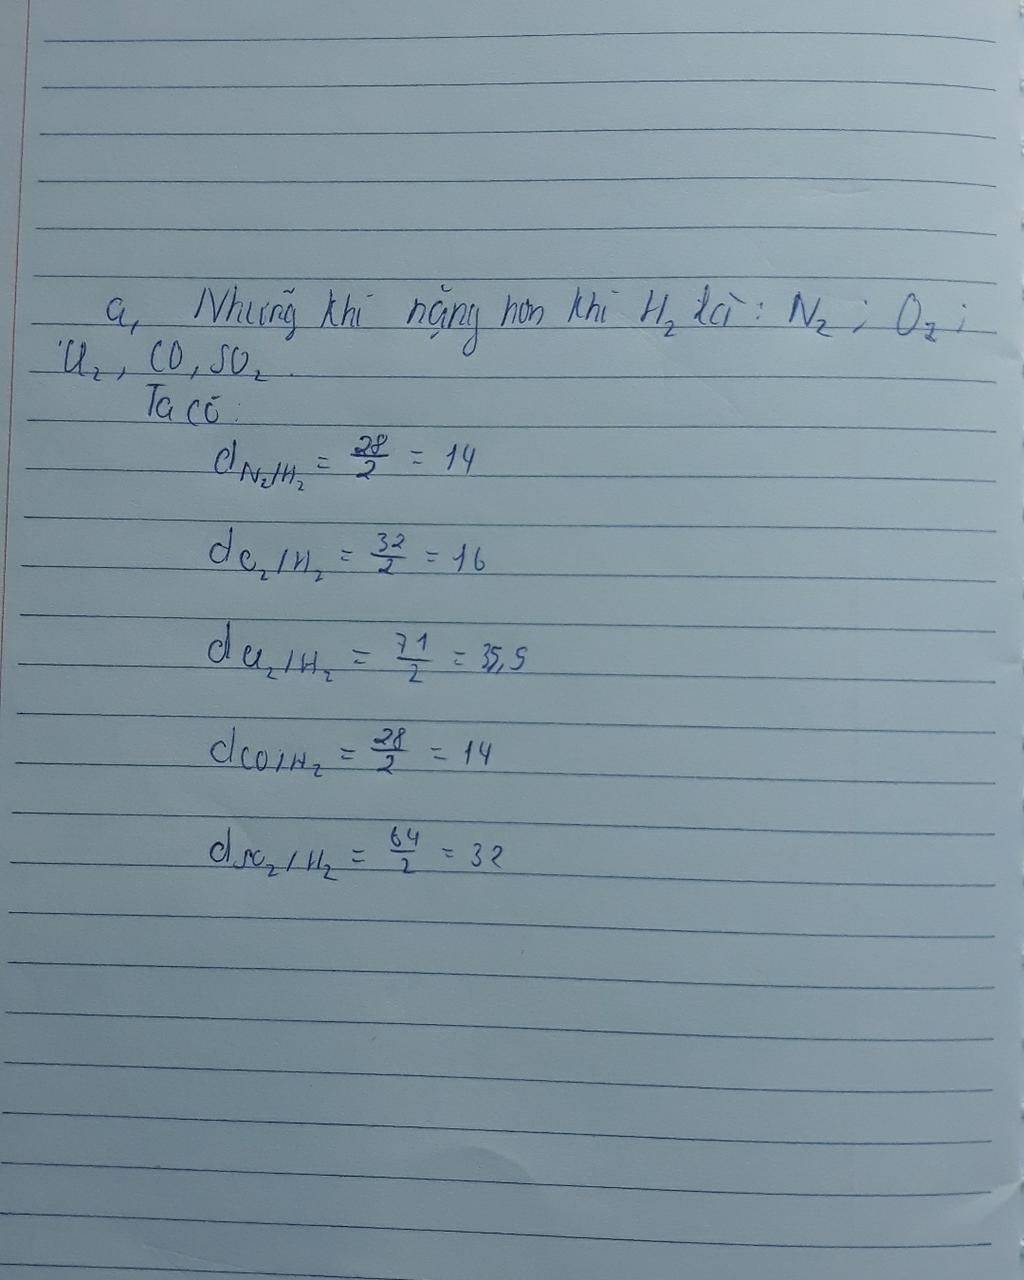 a, Những khí nặng hơn khí H₂ là: N₂; O₂;
Cl₂, CO, SO₂.
Ta có:
d N₂/H₂ = 28/2 = 14
d O₂/H₂ = 32/2 = 16
d Cl₂/H₂ = 71/2 = 35,5
d CO/H₂ = 28/2 = 14
d SO₂/H₂ = 64/2 = 32